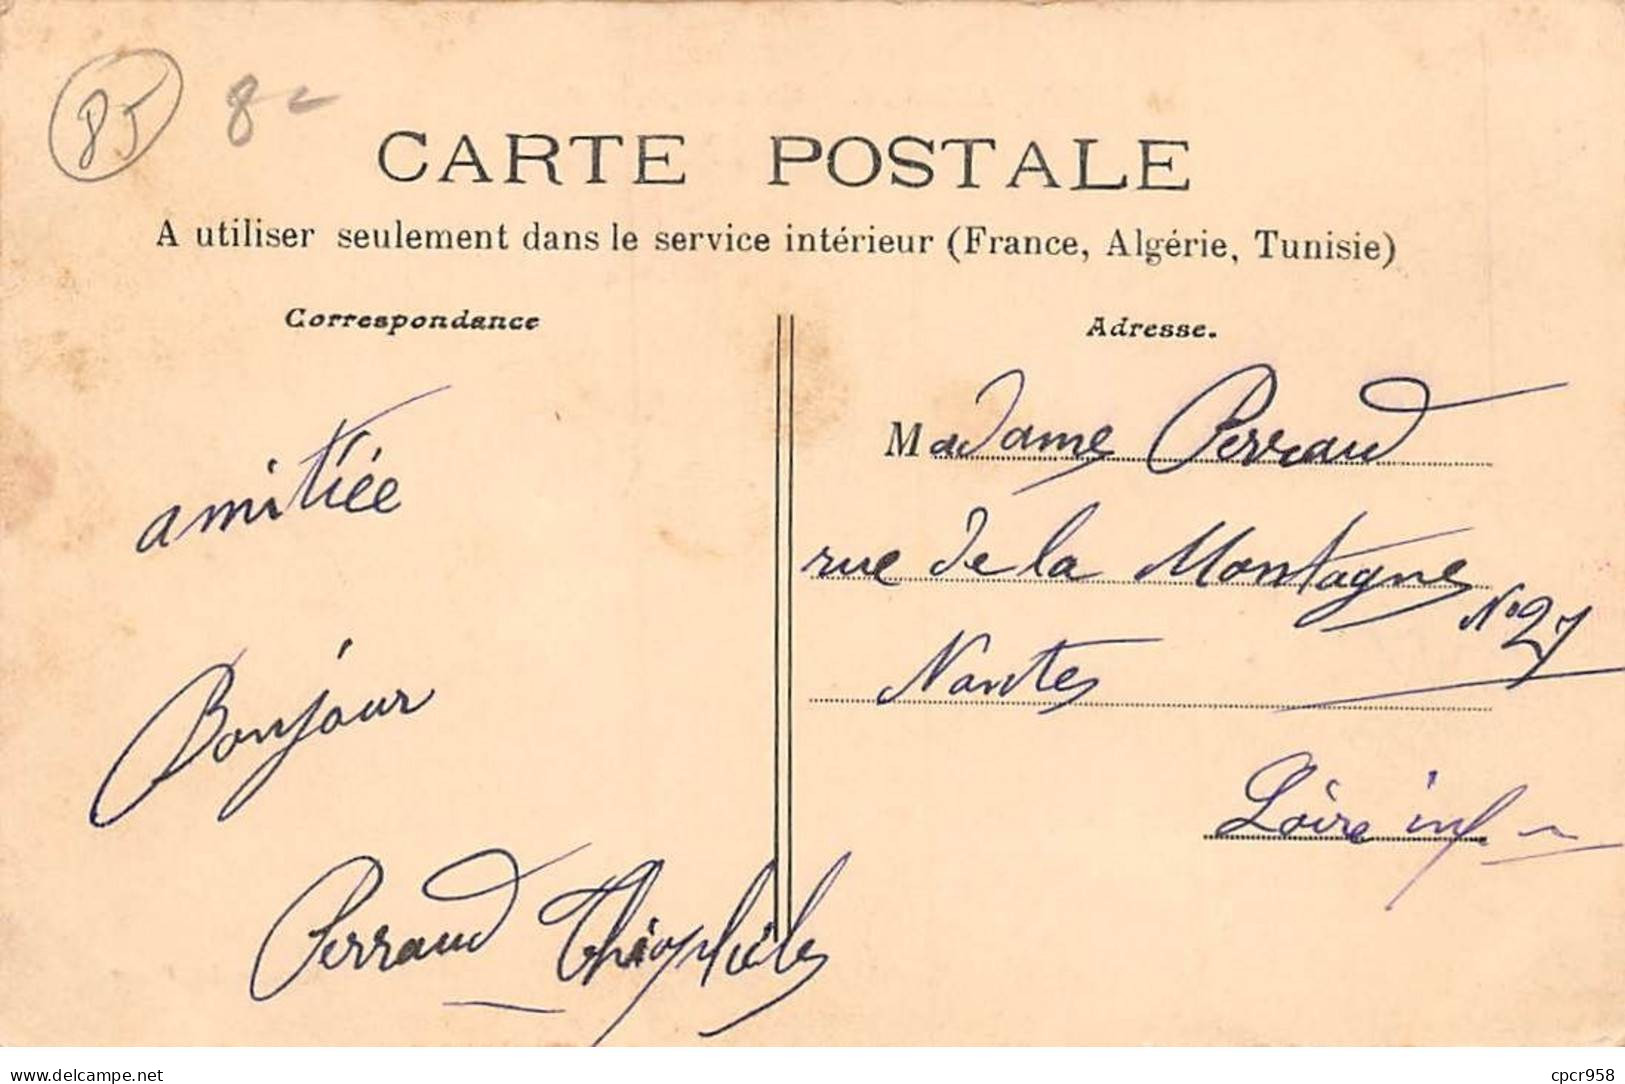 85 8-
CARTE POSTALE
A utiliser seulement dans le service intérieur (France, Algérie, Tunisie)
Correspondance
amitiée
Bonjour
Perraud Théophile
Adresse.
Madame Perraud
rue de la Montagne
No 27
Nantes
Loire inf
www.delcampe.net
cpcr958